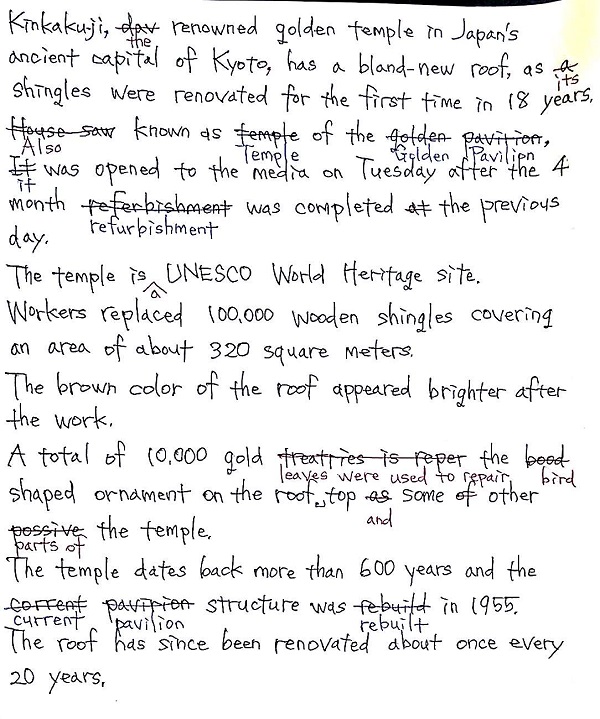 Kinkakuji, day renowned golden temple in Japan's
the
ancient capital of Kyoto, has a bland-new roof, as a
its
shingles were renovated for the first time in 18 years.
House saw known as temple of the golden pavition,
Also Temple Golden Pavilion
It was opened to the media on Tuesday after the 4
it
month referbishment was completed at the previous
refurbishment
day.
The temple is UNESCO World Heritage site.
a
Workers replaced 100,000 wooden shingles covering
an area of about 320 square meters.
The brown color of the roof appeared brighter after
the work.
A total of 10,000 gold treatries is reper the bood
leaves were used to repair bird
shaped ornament on the roof top as some of other
and
possive the temple.
parts of
The temple dates back more than 600 years and the
corrent pavition structure was rebuild in 1955.
current pavilion rebuilt
The roof has since been renovated about once every
20 years.